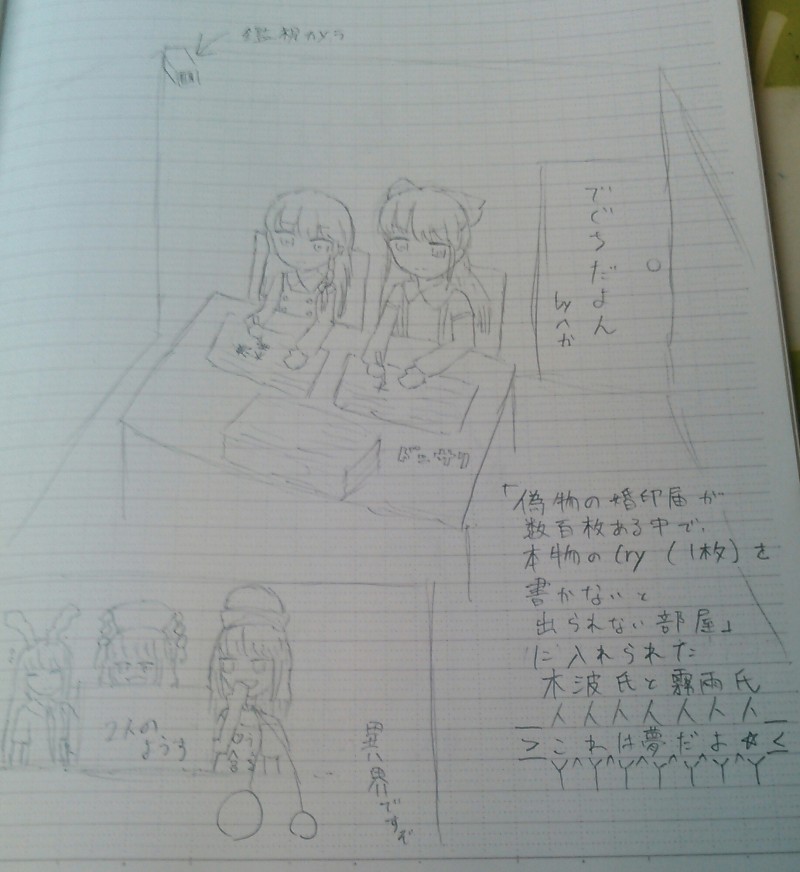 監視カメラ
でぐちだよん
byへか
ドッサリ
「偽物の婚印届が
数百枚ある中で、
本物の(ry (1枚)を
書かないと
出られない部屋」
に入れられた
木波氏と霧雨氏
＿人人人人人人人＿
＞これは夢だよ☆＜
￣Y^Y^Y^Y^Y^Y^Y￣
2人の
ようす
異界ですぞ